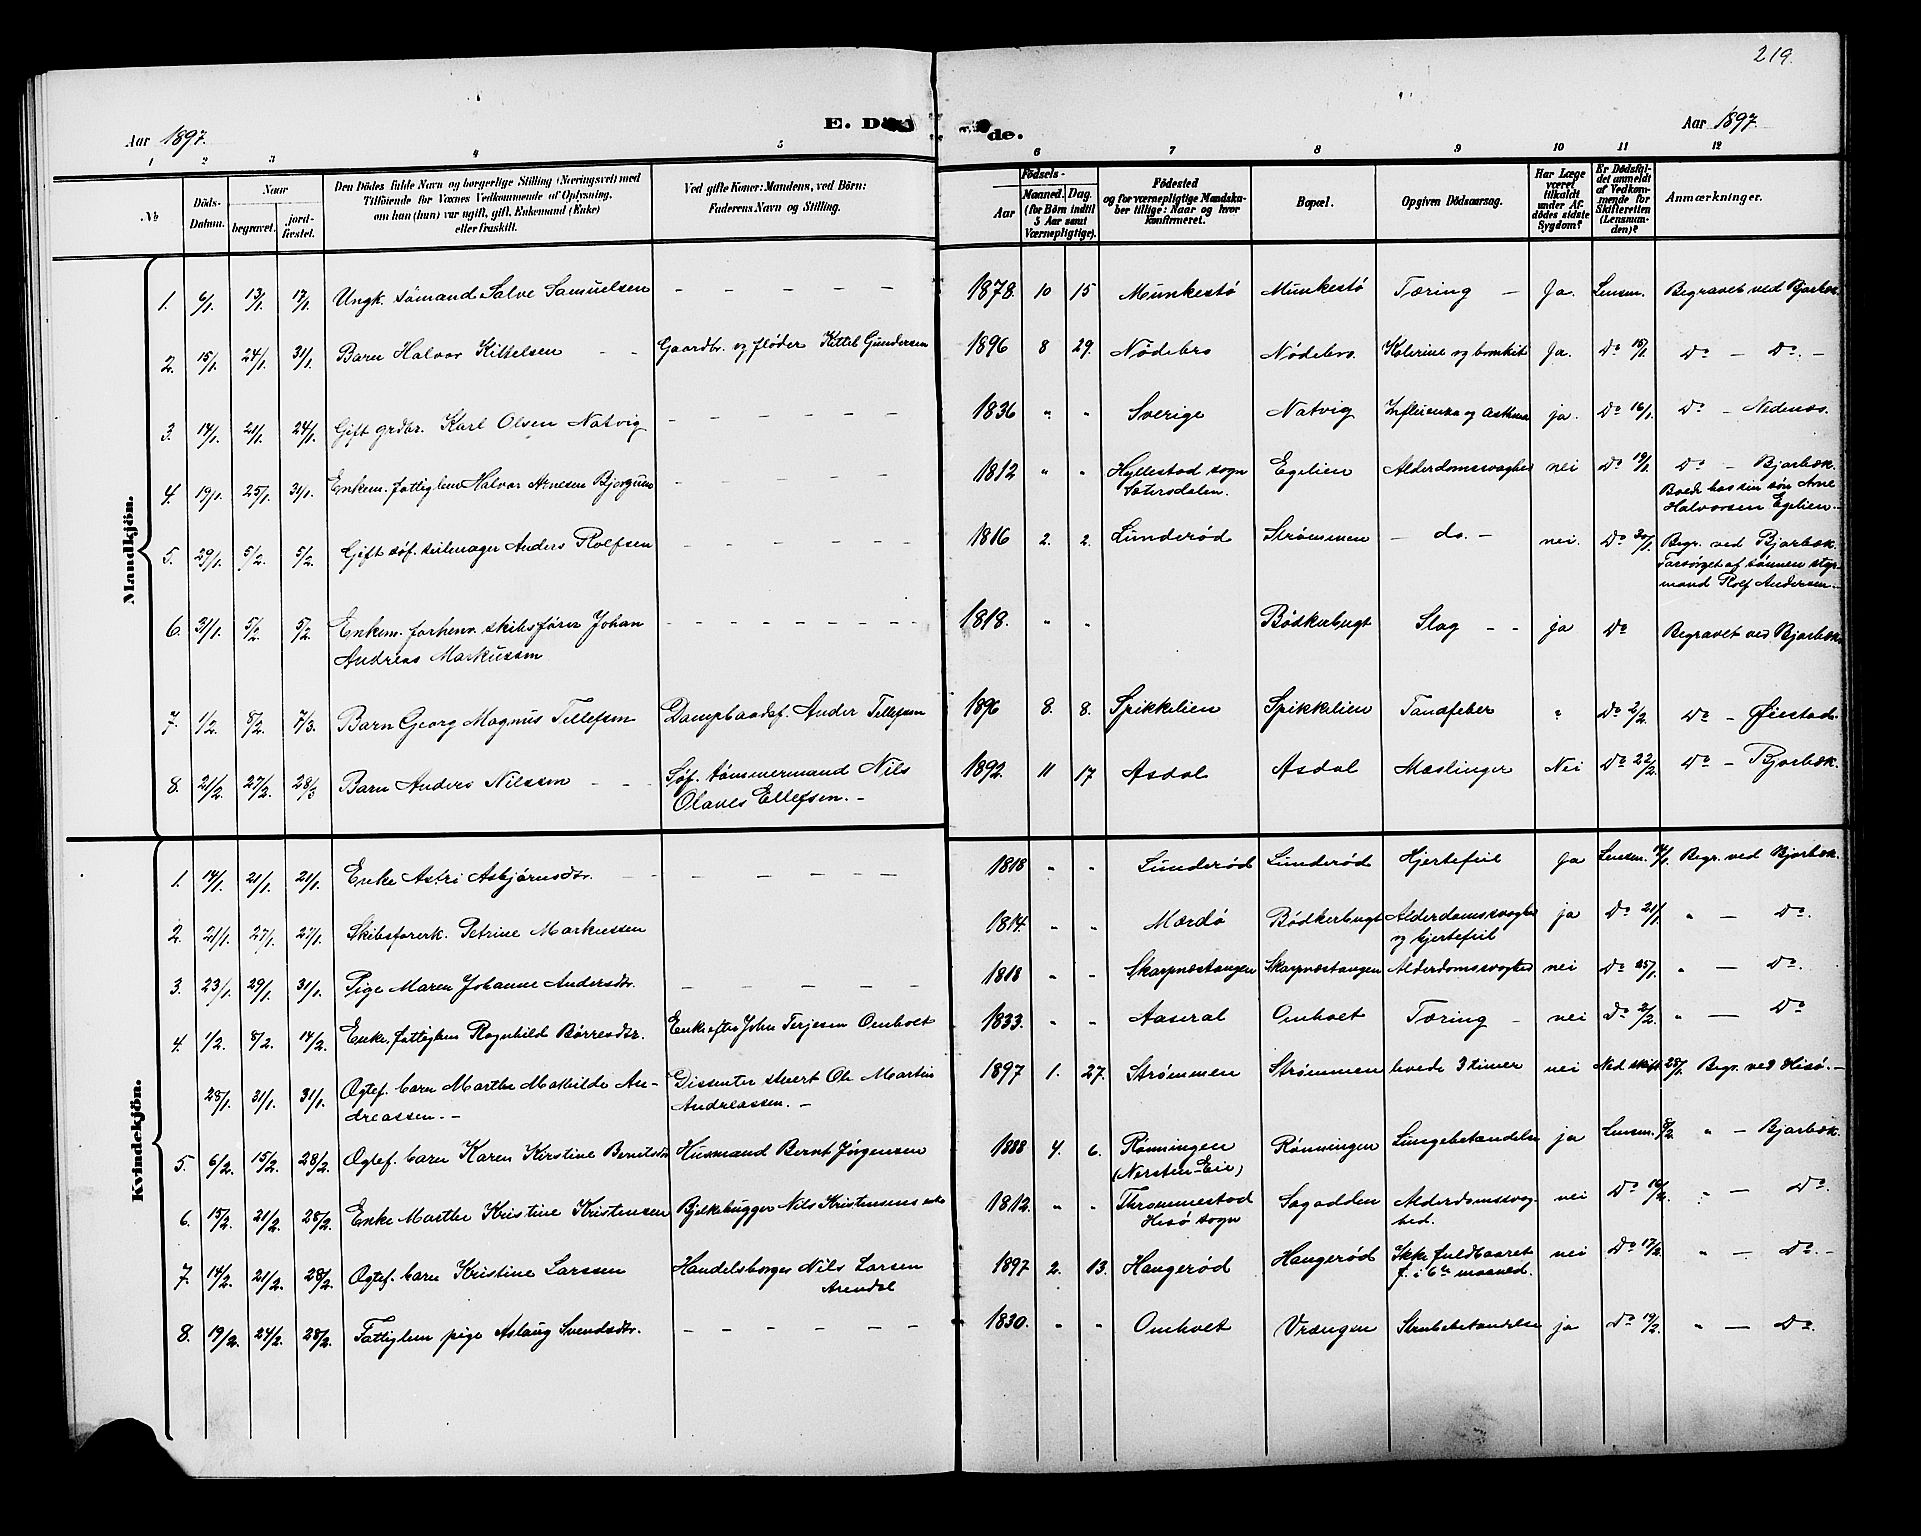 219.
Aar 1897. E. Dö de. Aar 1897.
1 2 3 4 5 6 7 8 9 10 11 12
No
Döds-Datum.
Naar
begravet.
jord-fæstet.
Den Dödes fulde Navn og borgerlige Stilling (Næringsvei) med
Tilföiende for Voxnes Vedkommende af Oplysning,
om han (hun) var ugift, gift, Enkemand (Enke)
eller fraskilt.
Ved gifte Koner: Mandens, ved Börn:
Faderens Navn og Stilling.
Födsels-
Aar
Maaned. Dag.
(for Börn indtil
5 Aar samt
Værnepligtige).
Födested
og for værnepligtige Mandska-
ber tillige: Naar og hvor
konfirmeret.
Bopæl.
Opgiven Dödsaarsag.
Har Læge
været
tilkaldt
under Af-
dödes sidste
Sygdom?
Er Dödsfal-
det anmeldt
af Vedkom-
mende for
Skifteretten
(Lensman-
den)?
Anmærkninger.
Mandkjön.
1. 6/1. 13/1. 17/1. Ungk. sömand Salve Samuelsen – – – – – 1878. 10 15 Munkestö Munkestö Tæring – Ja. Lensm. Begravet ved Bjorbæk.
2. 15/1. 24/1. 31/1. Barn Halvor Kittelsen – – Gaardbr. og fløder Kittil Gundersen 1896 8 29. Nödebro Nödebro. Kolerine og bronkit Ja. Do 15/1. Do – Do. –
3. 14/1. 21/1. 24/1. Gift grdbr. Karl Olsen Natvig – – – – – – 1836 " " Sverige Natvig Influensa og Asthma ja. Do 16/1. Do – Nedenæs.
4. 19/1. 25/1. 31/1. Enkem. fattiglem Halvor Arnesen Bjorgum – – – – – – 1812 " " Hyllestad sogn Egelien Alderdomssvaghed nei Do 19/1. Do – Bjorbæk.
Sætersdalen. Boede hos sin sön Arne
Halvorsen Egelien.
5. 29/1. 5/2. 5/2. Gift söf. seilmager Anders Rolfsen – – – – – – 1816 2. 2. Lunderød Strømmen – do. – nei. Do 30/1. Begr. ved Bjorbæk.
Forsørget af sønnen styr-
mand Rolf Andersen.
6. 31/1. 5/2. 5/2. Enkem. forhenv. skibsfører Johan – – – – – – – – 1818. " " Bødkerbugt Slag – – ja Do Begravet ved Bjorbæk.
Andreas Markussen
7. 1/2. 8/2. 7/3. Barn Georg Magnus Tellefsen Dampbaadsf. Ander Tellefsen 1896 8. 8. Spikkelien Spikkelien Tandfeber " Do 2/2. Do – Øiestad.
8. 21/2. 27/2. 28/3 Barn Anders Nilssen – – Söf. tømmermand Nils 1892. 11 17 Asdal Asdal Mæslinger Nei Do 22/2. Do – Bjorbæk.
Olaves Ellefsen. –
Kvindekjön.
1. 14/1. 21/1. 21/1. Enke Astri Asbjörnsdtr. – – – – – – 1818 " " Lunderød Lunderød Hjertefeil Ja Lensm. 14/1. Begr. ved Bjorbæk.
2. 21/1. 27/1. 27/1. Skibsförerk. Petrine Markussen 1814. " " Mærdö Bödkerbugt Alderdomssvaghed ja Do 21/1. " – Do.
og hjertefeil
3. 23/1. 29/1. 31/1. Pige Maren Johanne Andersdtr. – – – – – 1818 " " Skarpnæstangen Skarpnæstangen Alderdomssvaghed nei Do 25/1. " – Do.
4. 1/2. 8/2. 14/2. Enke. fattiglem Ragnhild Börresdtr. Enke efter John Terjesen Omholt 1833. " " Aaseral Omholt Tæring – nei Do 2/2. " – Do
25/1. 31/1. 31/1. Ogtef. barn Marthe Mathilde An- Dissenter stuert Ole Martin 1897 1. 27. Strømmen Strømmen levede 3 timer nei Ned. skift. 28/1. Begr. ved Hisø. –
dreassen. – Andreassen. –
5. 6/2. 15/2. 28/2. Ogtef. barn Karen Kirstine Berntsdtr Husmand Bernt Jörgensen 1888 4. 6. Rønningen Rønningen Lungebetændelse ja Lensm. 8/2. " – Bjorbæk.
(Nersten Eie)
6. 15/2. 21/2. 28/2. Enke Marthe Kristine Kristensen Bjelkehugger Nils Kristensens enke 1812. " " Thrommestad Sagodden Alderdomssvag- nei Do 16/2. " – Do.
Hisö sogn hed.
7. 14/2. 21/2. 28/2. Ogtef. barn Kristine Larssen Handelsborger Nils Larsen 1897 2. 13. Haugerød Haugerød Ikke fuldbaaret nei Do 17/2. " – Do. –
Arendal f. i 6te maaned.
8. 19/2. 24/2. 28/2. Fattiglem pige Aslaug Svendsdtr. – – – – – – 1830. " " Omholt Vrængen Strubebetændelse ja Do 19/2. " – Do.